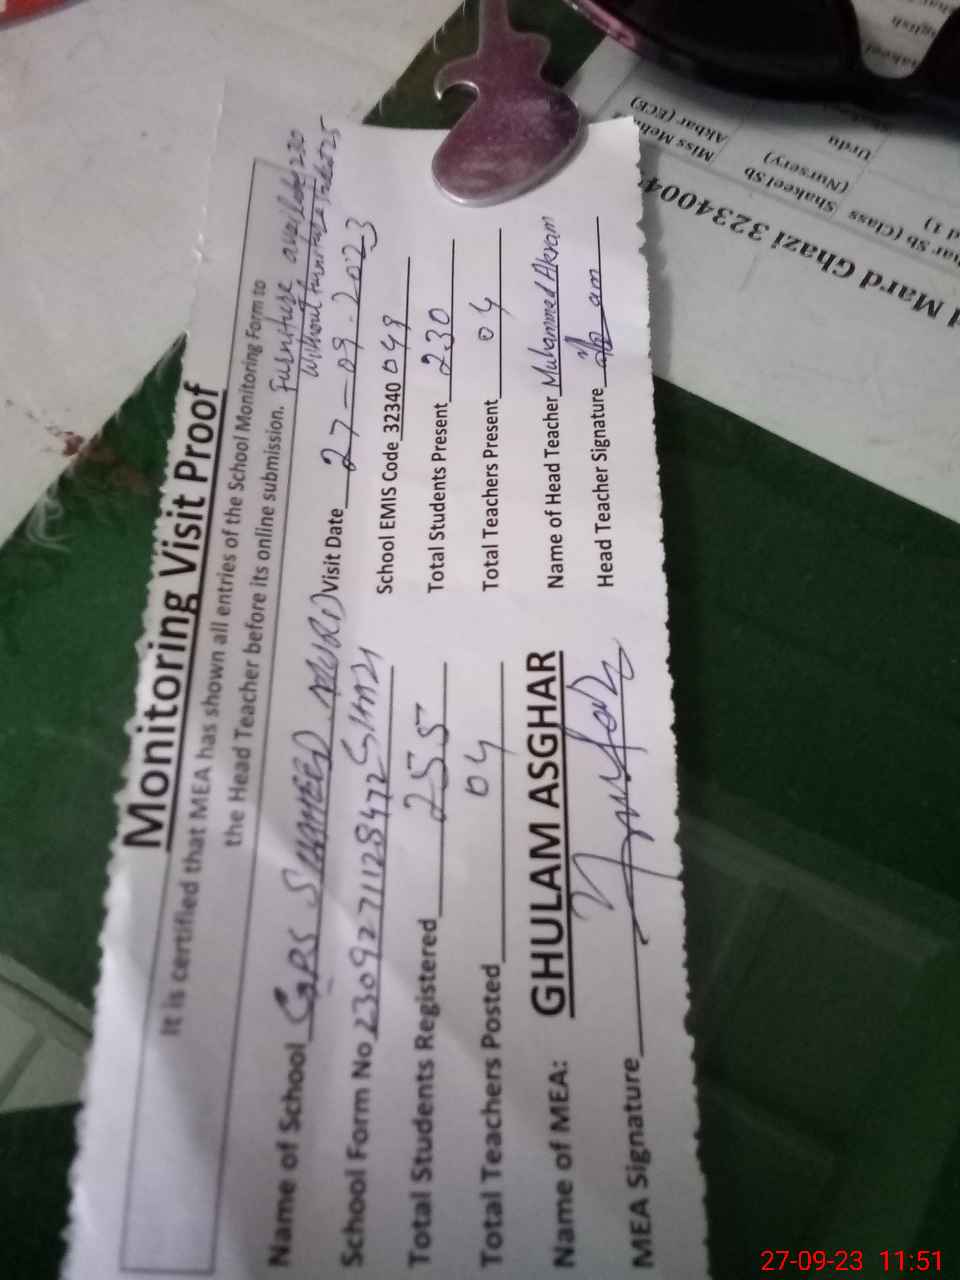 Monitoring Visit Proof
It is certified that MEA has shown all entries of the School Monitoring Form to
the Head Teacher before its online submission.
Furniture available 230
Without furniture
Name of School GPS Visit Date 27-09-2023
School Form No School EMIS Code 32340 049
Total Students Registered 255 Total Students Present 230
Total Teachers Posted 04 Total Teachers Present 04
Name of MEA: GHULAM ASGHAR Name of Head Teacher Muhammad Akram
MEA Signature Head Teacher Signature
Miss
Akbar (ECE)
Shakeel Sb
(Nursery)
Urdu
har Sb (Class
d 1)
d Mard Ghazi 3234004
27-09-23 11:51